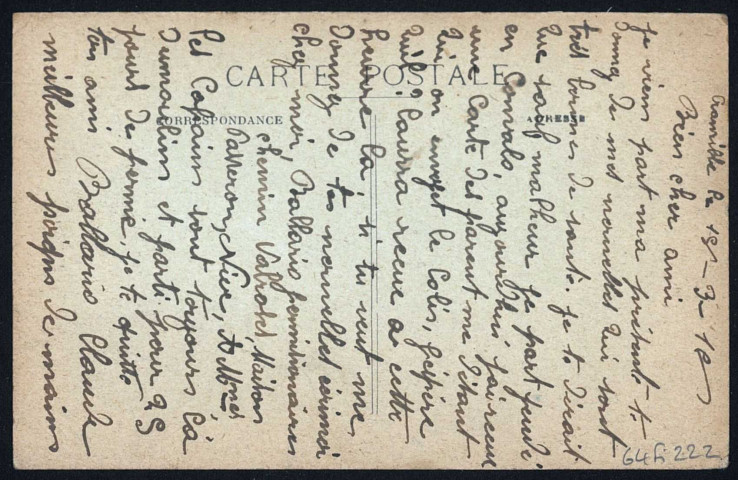 CARTE POSTALE
CORRESPONDANCE
ADRESSE
le 191-3-18
Bien cher ami
je viens part ma présente te
donnez de mes nouvelles qui sont
très bonnes de santé. je te dirait
que sauf malheur je part jeudi
en Convalo, aujourdhui j'ai reçue
une Carte des parent me disant
qui on envoyé le Colis, j'espère
qui laura recue a cette
heure la, si tu veut me
donnez de tes nouvelles écrimoi
chez moi, Ballario permissionaires
chemin Vallrose, Maison
Passeron, Nice, A Mmes
Les Copains sont toujours la
Dumoulin et parti pour 25
jours de ferme, je te quitte
ton ami Ballario Claude
meilleures poigns de mains
64 Fi 222